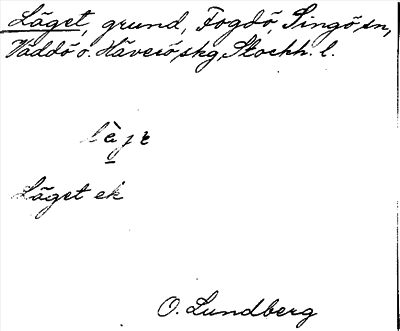 Läget, grund, Fogdö, Singö sn,
Väddö o. Häverö skg, Stockh. l.
Läget ek
O. Lundberg